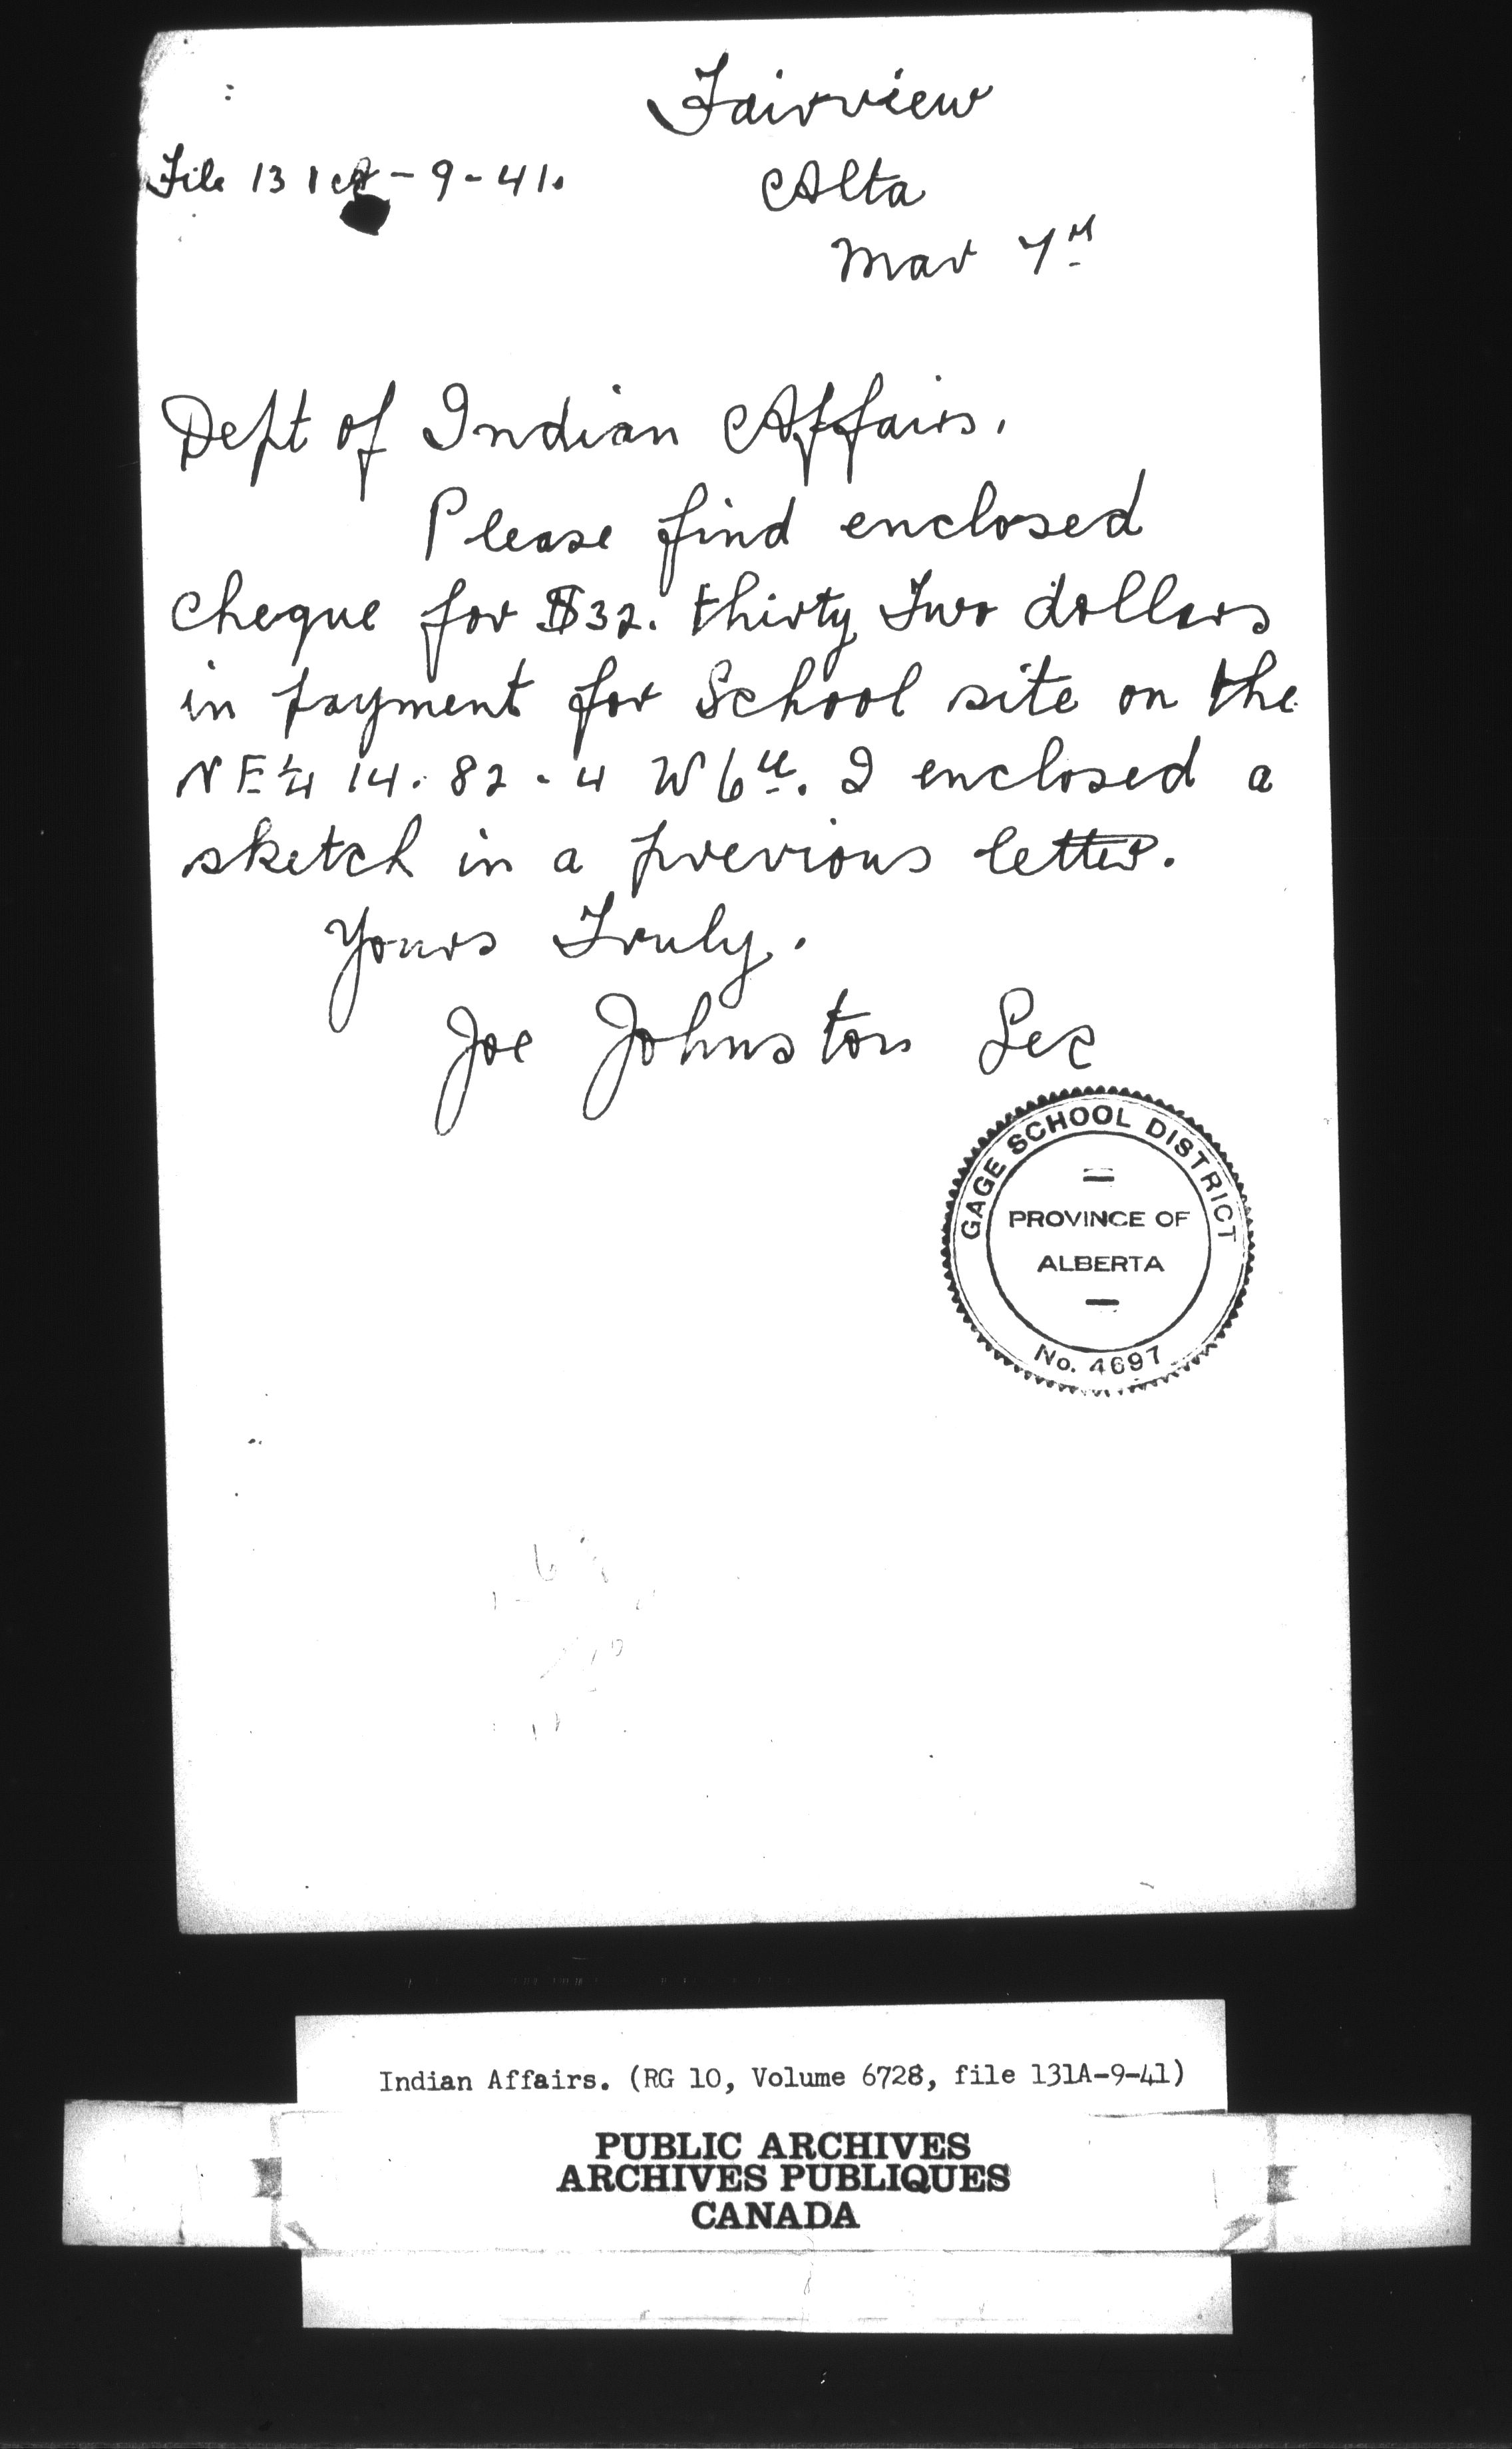 Fairview
File 131A-9-41.
Alta
Mar 7th
Dept of Indian Affairs.
Please find enclosed
cheque for $32. thirty Two dollars
in payment for School site on the
NE 1/4 14. 82 - 4 W 6th. I enclosed a
sketch in a previous letter.
Yours Truly.
Joe Johnston Sec
GAGE SCHOOL DISTRICT
PROVINCE OF
ALBERTA
No. 4697
Indian Affairs. (RG 10, Volume 6728, file 131A-9-41)
PUBLIC ARCHIVES
ARCHIVES PUBLIQUES
CANADA